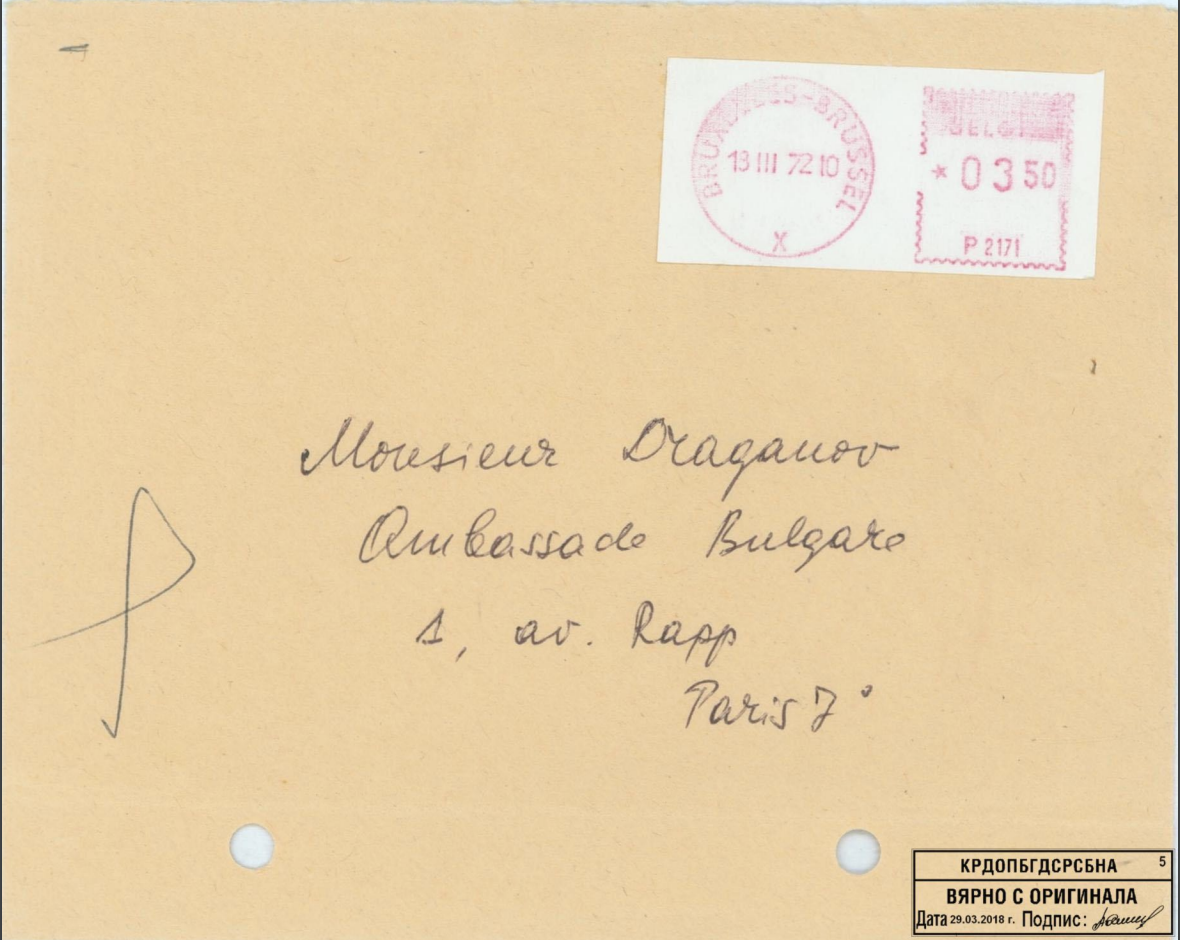 BRUXELLES-BRUSSEL
13 III 72 10
X
BELGI
* 03 50
P 2171
Monsieur Draganov
Ambassade Bulgare
1, av. Rapp
Paris 7°
КРДОПБГДСРСБНА 5
ВЯРНО С ОРИГИНАЛА
Дата 29.03.2018 г. Подпис: